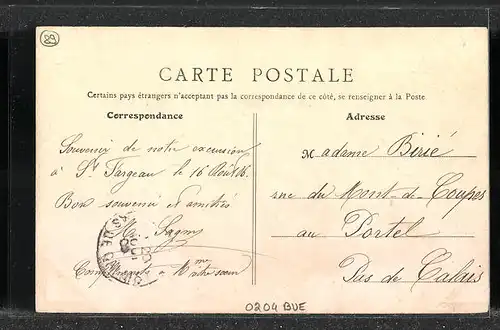 89
CARTE POSTALE
Certains pays étrangers n'acceptant pas la correspondance de ce côté, se renseigner à la Poste.
Correspondance
Souvenir de notre excursion
à St Fargeau le 16 Août 06.
Bon souvenir et amitiés
à Mme
Adresse
Madame Birié
rue du Mont-de-Coupes
au Portel
Pas de Calais
0204 BUE